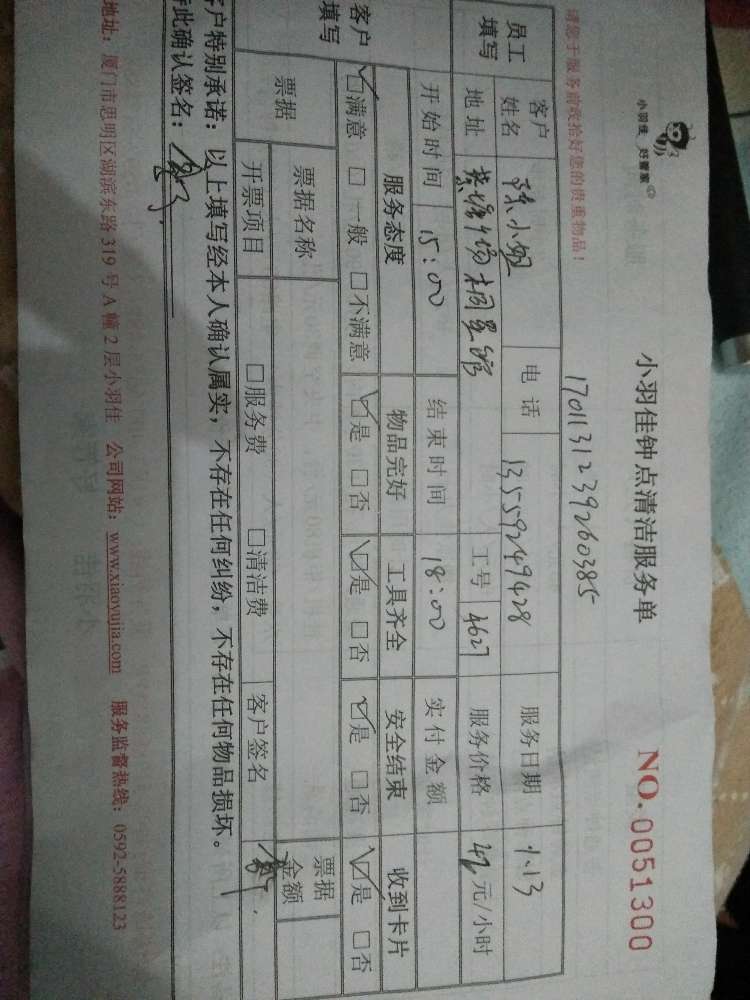 小羽佳 好管家
小羽佳钟点清洁服务单
NO. 0051300
请您于服务前收拾好您的贵重物品！
1701131239260385
员工填写
客户姓名 张小姐 电话 13559249428 服务日期 1.13
地址 工号 4627 服务价格 元/小时
开始时间 15:00 结束时间 18:00 实付金额
客户填写
服务态度 物品完好 工具齐全 安全结束 收到卡片
☑满意 □一般 □不满意 ☑是 □否 ☑是 □否 ☑是 □否 ☑是 □否
票据 票据名称 票据金额
开票项目 □服务费 □清洁费 客户签名
客户特别承诺：以上填写经本人确认属实，不存在任何纠纷，不存在任何物品损坏。
特此确认签名：
地址：厦门市思明区湖滨东路319号A幢2层小羽佳 公司网站：www.xiaoyujia.com 服务监督热线：0592-5888123